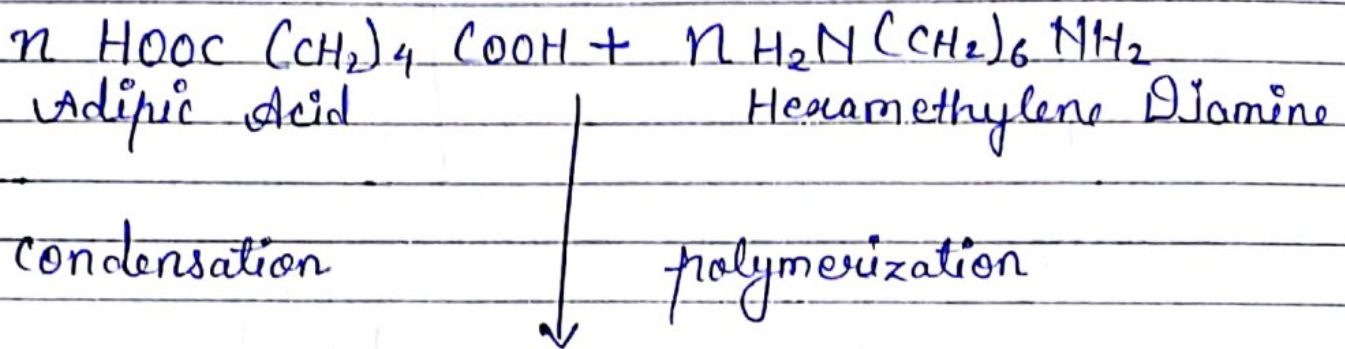 n HOOC (CH₂)₄ COOH + n H₂N (CH₂)₆ NH₂
Adipic Acid Hexamethylene Diamine
condensation polymerization